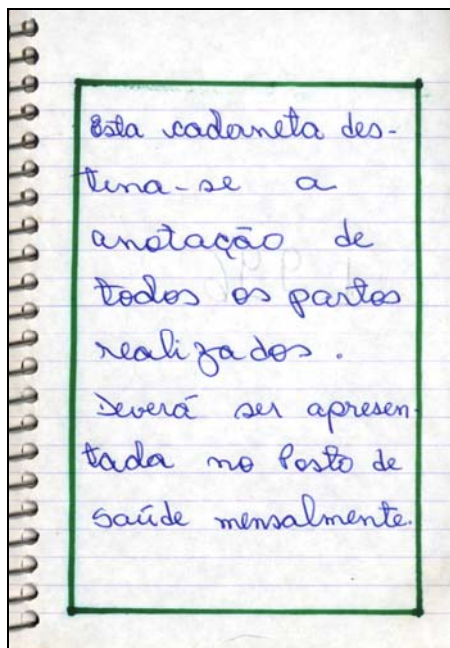 Esta caderneta des-
tina-se a
anotação de
todos os partos
realizados.
Deverá ser apresen-
tada no Posto de
saúde mensalmente.